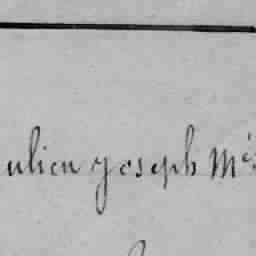 ulien Joseph Mé